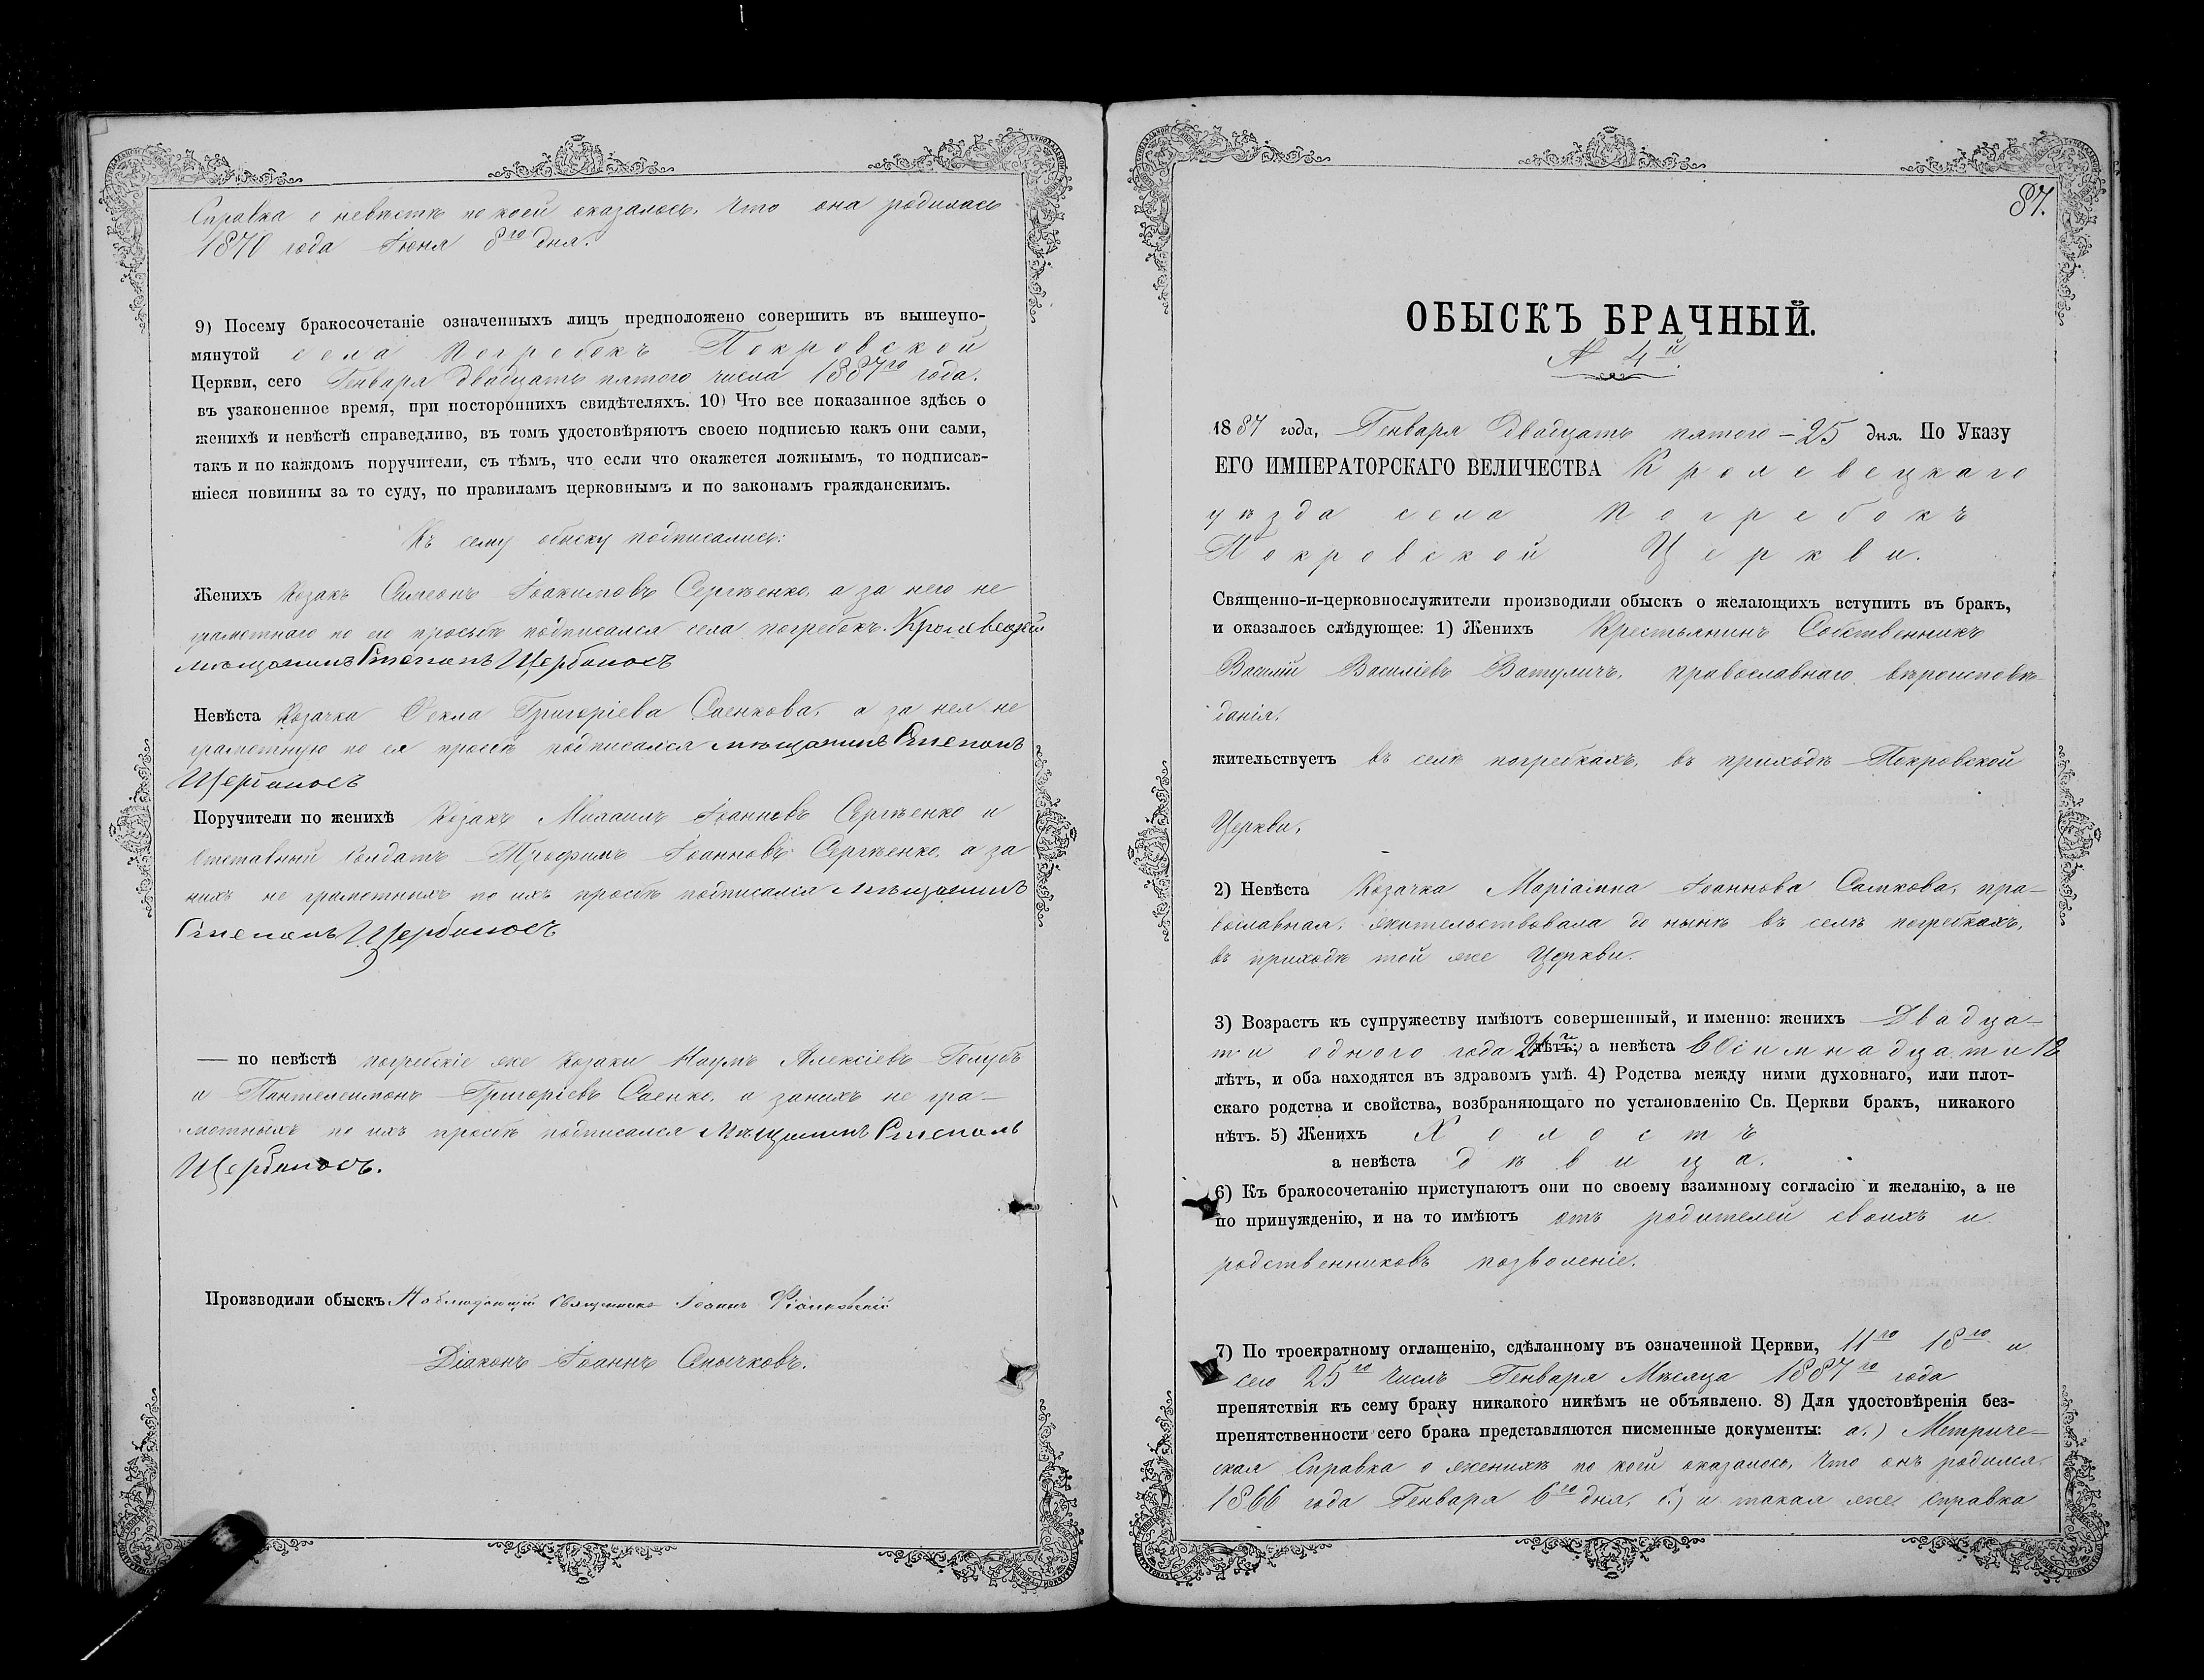 Справка о невѣстѣ по коей оказалось, что она родилась
1870 года Іюня 8го дня.
9) Посему бракосочетаніе означенныхъ лицъ предположено совершить въ вышеупо-
мянутой села Погребокъ Покровской
Церкви, сего Генваря двадцать пятого числа 1887го года.
въ узаконенное время, при постороннихъ свидѣтеляхъ. 10) Что все показанное здѣсь о
женихѣ и невѣстѣ справедливо, въ томъ удостовѣряютъ своею подписью какъ они сами,
такъ и по каждомъ поручители, съ тѣмъ, что если что окажется ложнымъ, то подписав-
шіеся повинны за то суду, по правиламъ церковнымъ и по законамъ гражданскимъ.
Къ сему обыску подписались:
Женихъ Козакъ Симеонъ Іоакимовъ Сергѣенко, а за него не
грамотнаго по его просьбѣ подписался села погребокъ Кролевецкій
мѣщанинъ Степанъ Щербонось
Невѣста Козачка Фекла Григоріева Саенкова, а за нея не
грамотную по ея просьбѣ подписался мѣщанинъ Степанъ
Щербонось
Поручители по женихѣ Козакъ Михаилъ Іоанновъ Сергѣенко и
отставный солдатъ Трофимъ Іоанновъ Сергѣенко, а за
нихъ не грамотныхъ по ихъ просьбѣ подписался мѣщанинъ
Степанъ Щербонось
— по невѣстѣ погребскіе же козаки Наумъ Алексіевъ Голубъ
и Пантелеимонъ Григоріевъ Саенко, а за нихъ не гра-
мотныхъ по ихъ просьбѣ подписался Мѣщанинъ Степанъ
Щербонось.
Производили обыскъ Наблюдающій священникъ Іоаннъ
Діаконъ Іоаннъ
87.
ОБЫСКЪ БРАЧНЫЙ.
№ 4й.
1887 года, Генваря Двадцать пятого - 25 дня. По Указу
ЕГО ИМПЕРАТОРСКАГО ВЕЛИЧЕСТВА Кролевецкаго
уѣзда села Погребокъ
Покровской Церкви.
Священно-и-церковнослужители производили обыскъ о желающихъ вступить въ бракъ,
и оказалось слѣдующее: 1) Женихъ Крестьянинъ Собственникъ
Василій Василіевъ Ватуличъ, православнаго вѣроисповѣ-
данія,
жительствуетъ въ селѣ погребкахъ, въ приходѣ Покровской
Церкви,
2) Невѣста Козачка Маріамна Іоаннова Самкова, пра-
вославная, жительствовала до нынѣ въ селѣ погребкахъ,
въ приходѣ той же Церкви.
3) Возрастъ къ супружеству имѣютъ совершенный, и именно: женихъ Двадца-
ти одного года 21й лѣтъ; а невѣста восімнадцати 18
лѣтъ, и оба находятся въ здравомъ умѣ. 4) Родства между ними духовнаго, или плот-
скаго родства и свойства, возбраняющаго по установленію Св. Церкви бракъ, никакого
нѣтъ. 5) Женихъ Холостъ
а невѣста дѣвица.
6) Къ бракосочетанію приступаютъ они по своему взаимному согласію и желанію, а не
по принужденію, и на то имѣютъ отъ родителей своихъ и
родственниковъ позволеніе.
7) По троекратному оглашенію, сдѣланному въ означенной Церкви, 11го 18го и
сего 25го Числъ Генваря Мѣсяца 1887го года
препятствія къ сему браку никакого никѣмъ не объявлено. 8) Для удостовѣренія без-
препятственности сего брака представляются писменные документы: а.) Метриче-
ская Справка о женихѣ по коей оказалось, что онъ родился
1866 года Генваря 6го дня, б.) и такая же справка